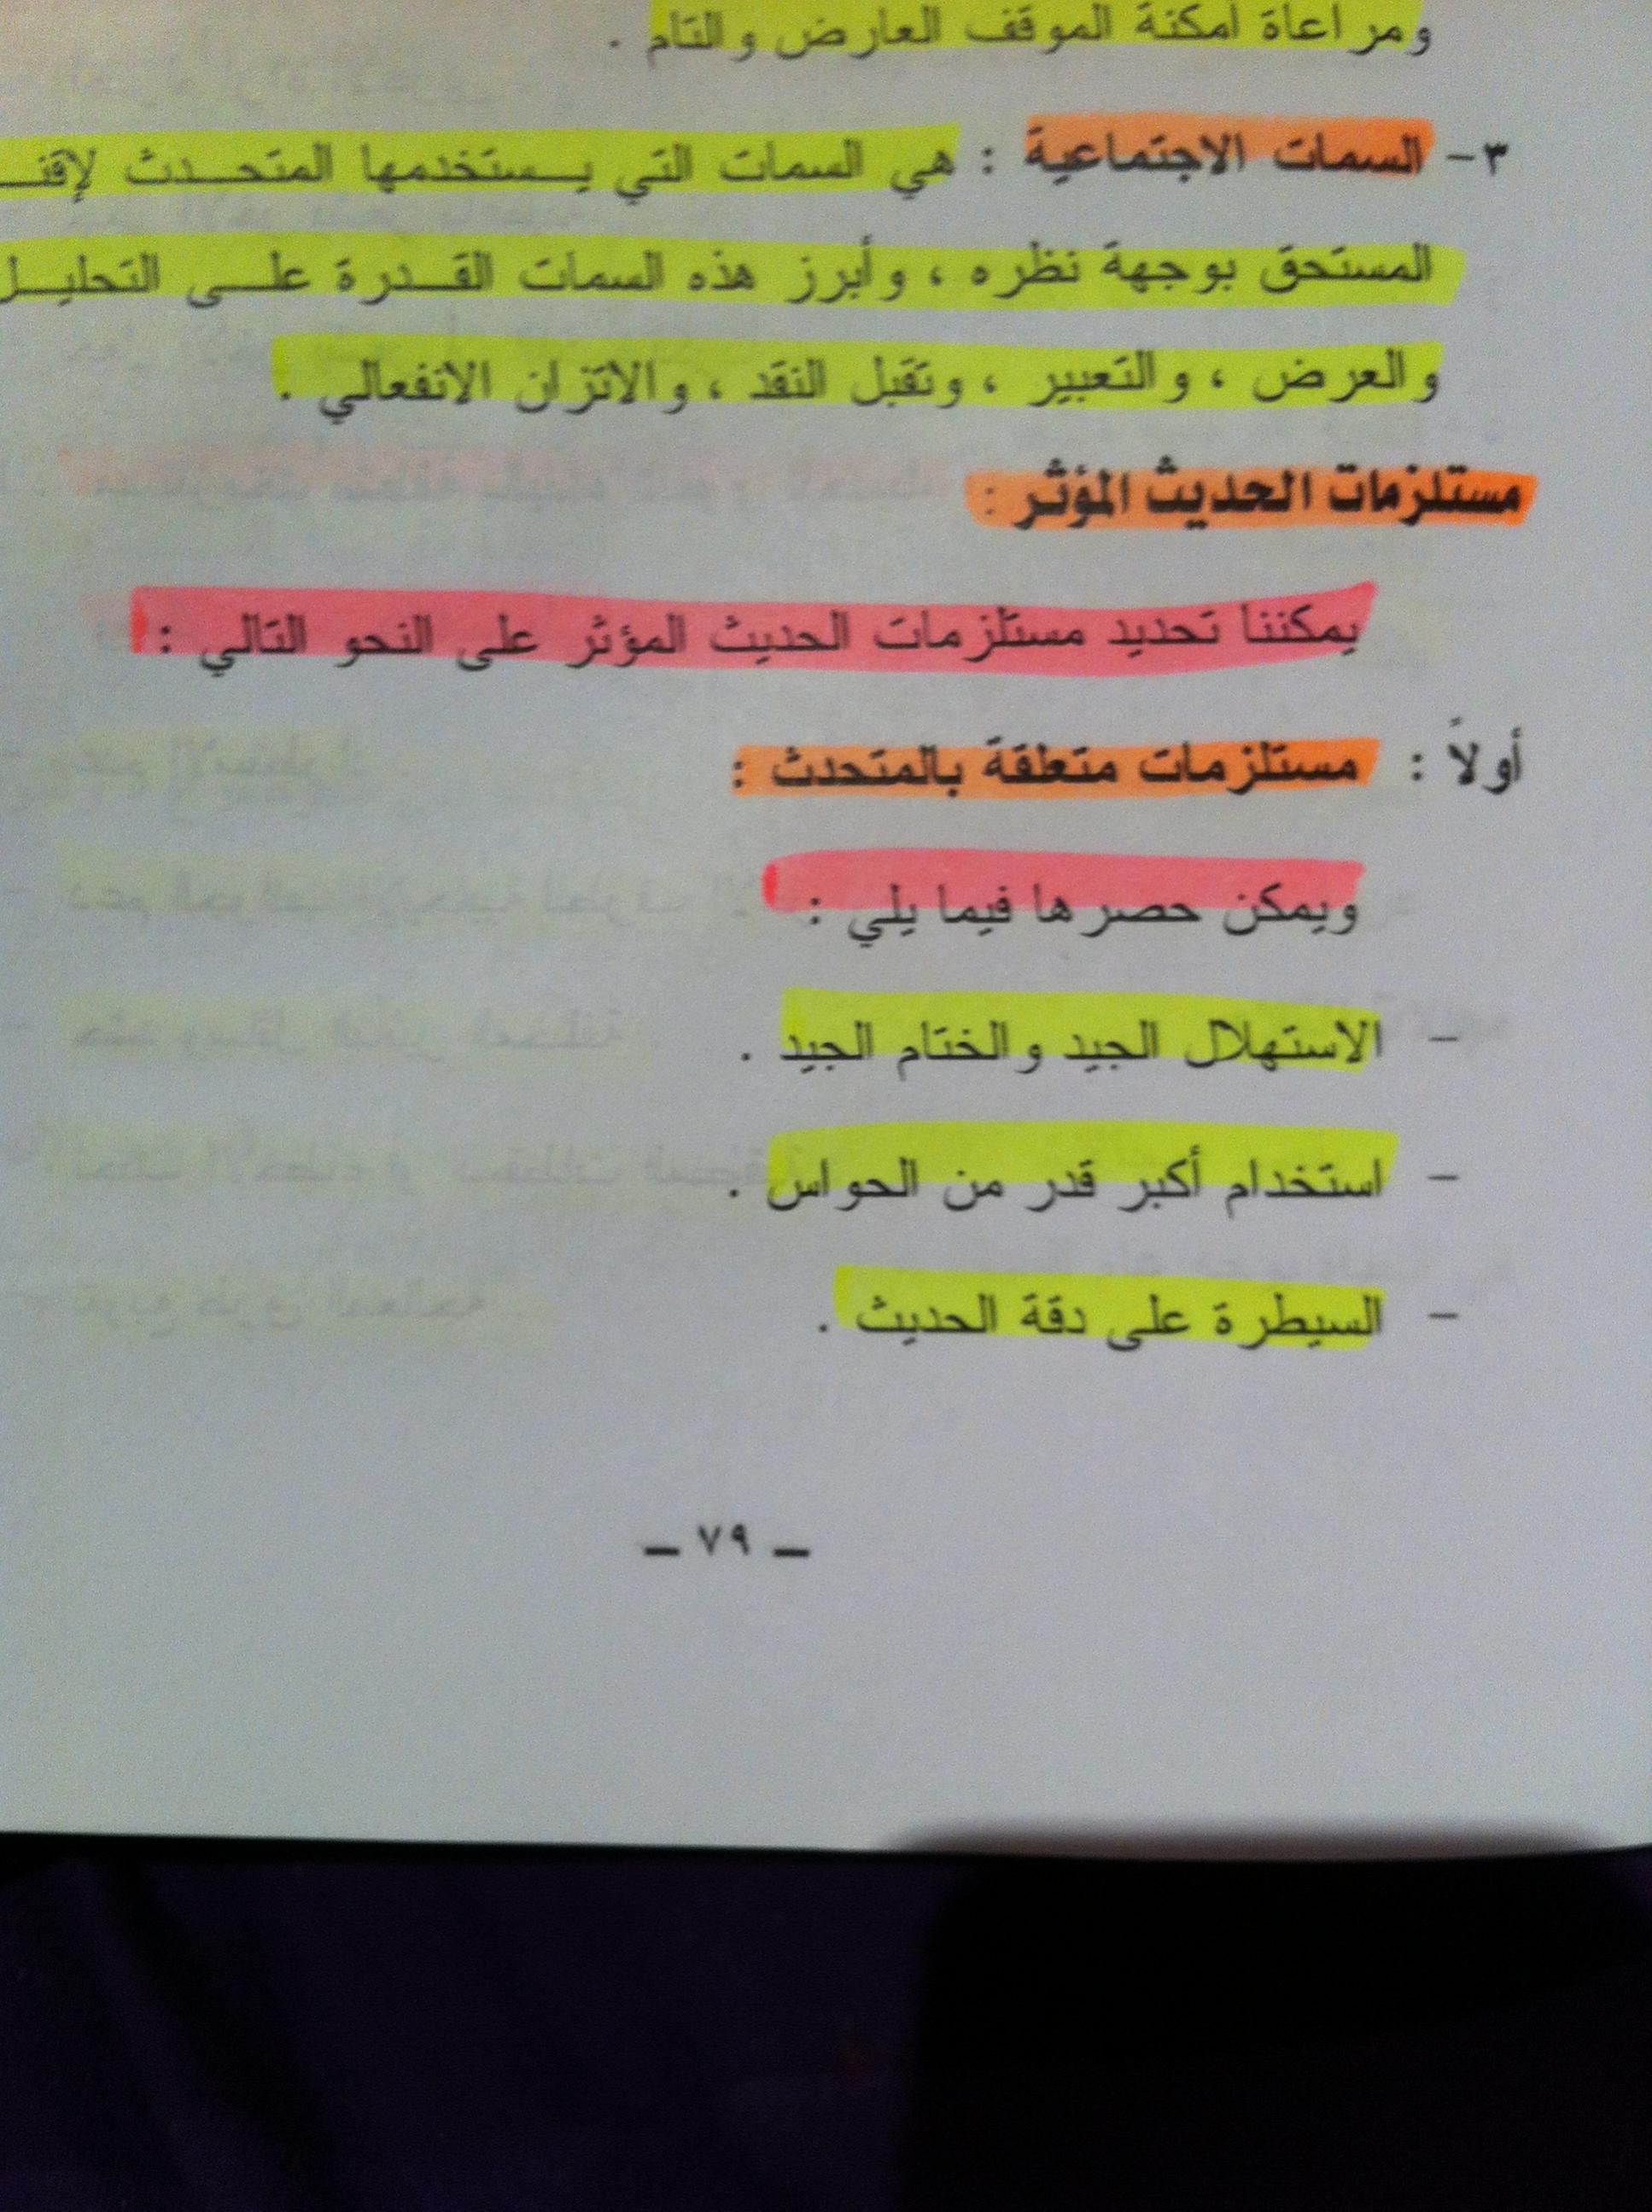 ومراعاة أمكنة الموقف العارض والتام .
٣- السمات الاجتماعية : هي السمات التي يستخدمها المتحدث
المستحق بوجهة نظره ، وأبرز هذه السمات القدرة على التحليل
والعرض ، والتعبير ، وتقبل النقد ، والاتزان الانفعالي .
مستلزمات الحديث المؤثر :
يمكننا تحديد مستلزمات الحديث المؤثر على النحو التالي :
أولاً : مستلزمات متعلقة بالمتحدث :
ويمكن حصرها فيما يلي :
- الاستهلال الجيد والختام الجيد .
- استخدام أكبر قدر من الحواس .
- السيطرة على دقة الحديث .
– ٧٩ –